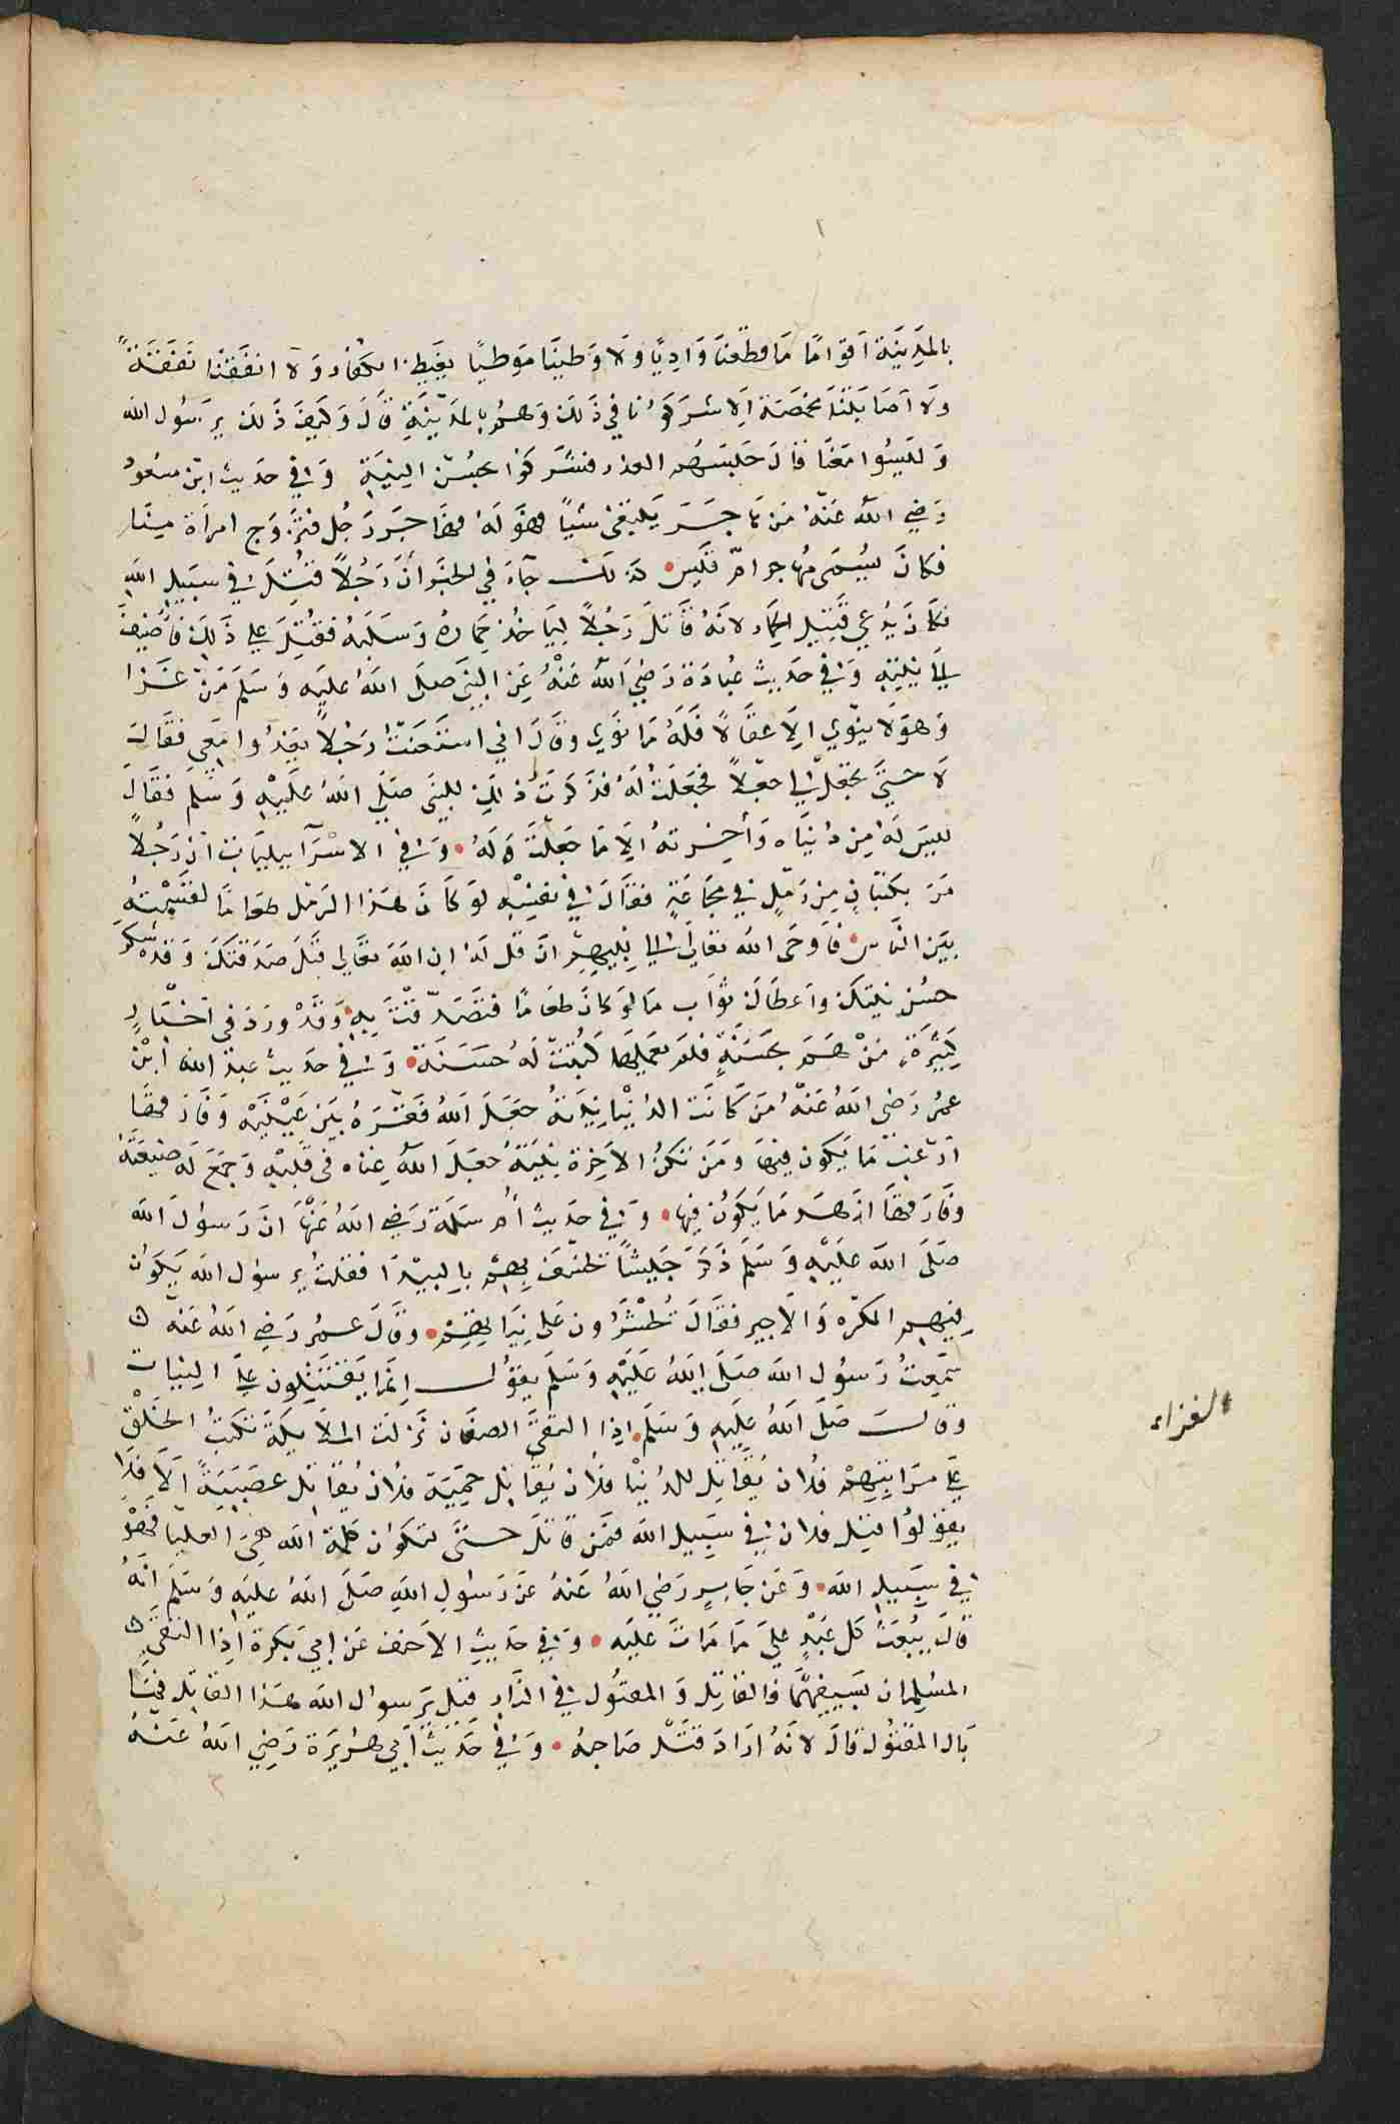 بالمدينة اقواما ما قطعنا واديا ولا وطينا موطيا يغيظ الكفار ولا انفقنا نفقة
ولا اصابتنا مخمصة الا شركونا في ذلك وهم بالمدينة قال وكيف ذلك يرسول الله
وليسوا معنا قال حبسهم العذر فشركوا بحسن النية وفي حديث ابن مسعود
رضي الله عنه من هاجر يبتغي شيئا فهو له فهاجر رجل فتزوج امراة منا
فكان يسمى مهاجر ام قيس كذلك جاء في الخبر أن رجلا قتل في سبيل الله
فكان يدعي قتيل الحمار لانه قاتل رجلا لياخذ حماره وسلبه فقتل علي ذلك فأضيف
الي نيته وفي حديث عبادة رضي الله عنه عن النبي صلى الله عليه وسلم من غزا
وهو لا ينوي الا عقالا فله ما نوي وقال اني استعنت رجلا يغزوا معي فقال
لا حتي تجعل لي جعلا فجعلت له فذكرت ذلك للنبي صلي الله عليه وسلم فقال
ليس له من دنياه وأخرته الا ما جعلت له وفي الاسرآييليات ان رجلا
مر بكثبان من رمل في مجاعة فقال في نفسه لو كان هذا الرمل طعاما لقسمته
بين الناس فاوحى الله تعالى الي نبيهم ان قل له ان الله تعالي قبل صدقتك وقد شكر
حسن نيتك واعطاك ثواب ما لو كان طعاما فتصدقت به وقد ورد في اخبار
كثيرة من هم بحسنة فلم يعملها كتبت له حسنة وفي حديث عبد الله ابن
عمر رضي الله عنه من كانت الدنيا نيته جعل الله فقره بين عينيه وفارقها
ارغب ما يكون فيها ومن تكن الاخرة نيته جعل الله غناه في قلبه وجمع له ضيعته
وفارقها ازهد ما يكون فيها وفي حديث أم سلمة رضي الله عنها ان رسول الله
صلى الله عليه وسلم ذكر جيشا يخسف بهم بالبيدا فقلت يرسول الله يكون
فيهم المكره والاجير فقال تحشرون على نياتهم وقال عمر رضي الله عنه
سمعت رسول الله صلى الله عليه وسلم يقول إنما يقتتلون علي النيات
وقال صلى الله عليه وسلم اذا التقى الصفان نزلت الملايكة تكتب الخلق
علي مراتبهم فلان يقاتل للدنيا فلان يقاتل حمية فلان يقاتل عصبية الا فلا
يقولوا قتل فلان في سبيل الله فمن قاتل حتى تكون كلمة الله هي العليا فهو
في سبيل الله وعن جابر رضي الله عنه عن رسول الله صلى الله عليه وسلم انه
قال يبعث كل عبد علي ما مات عليه وفي حديث الاحنف عن ابي بكرة اذا التقي
المسلمان بسيفيهما فالقاتل والمقتول في النار قيل يرسول الله هذا القاتل فما
بال المقتول قال لانه اراد قتل صاحبه وفي حديث أبي هريرة رضي الله عنه
الغزاء